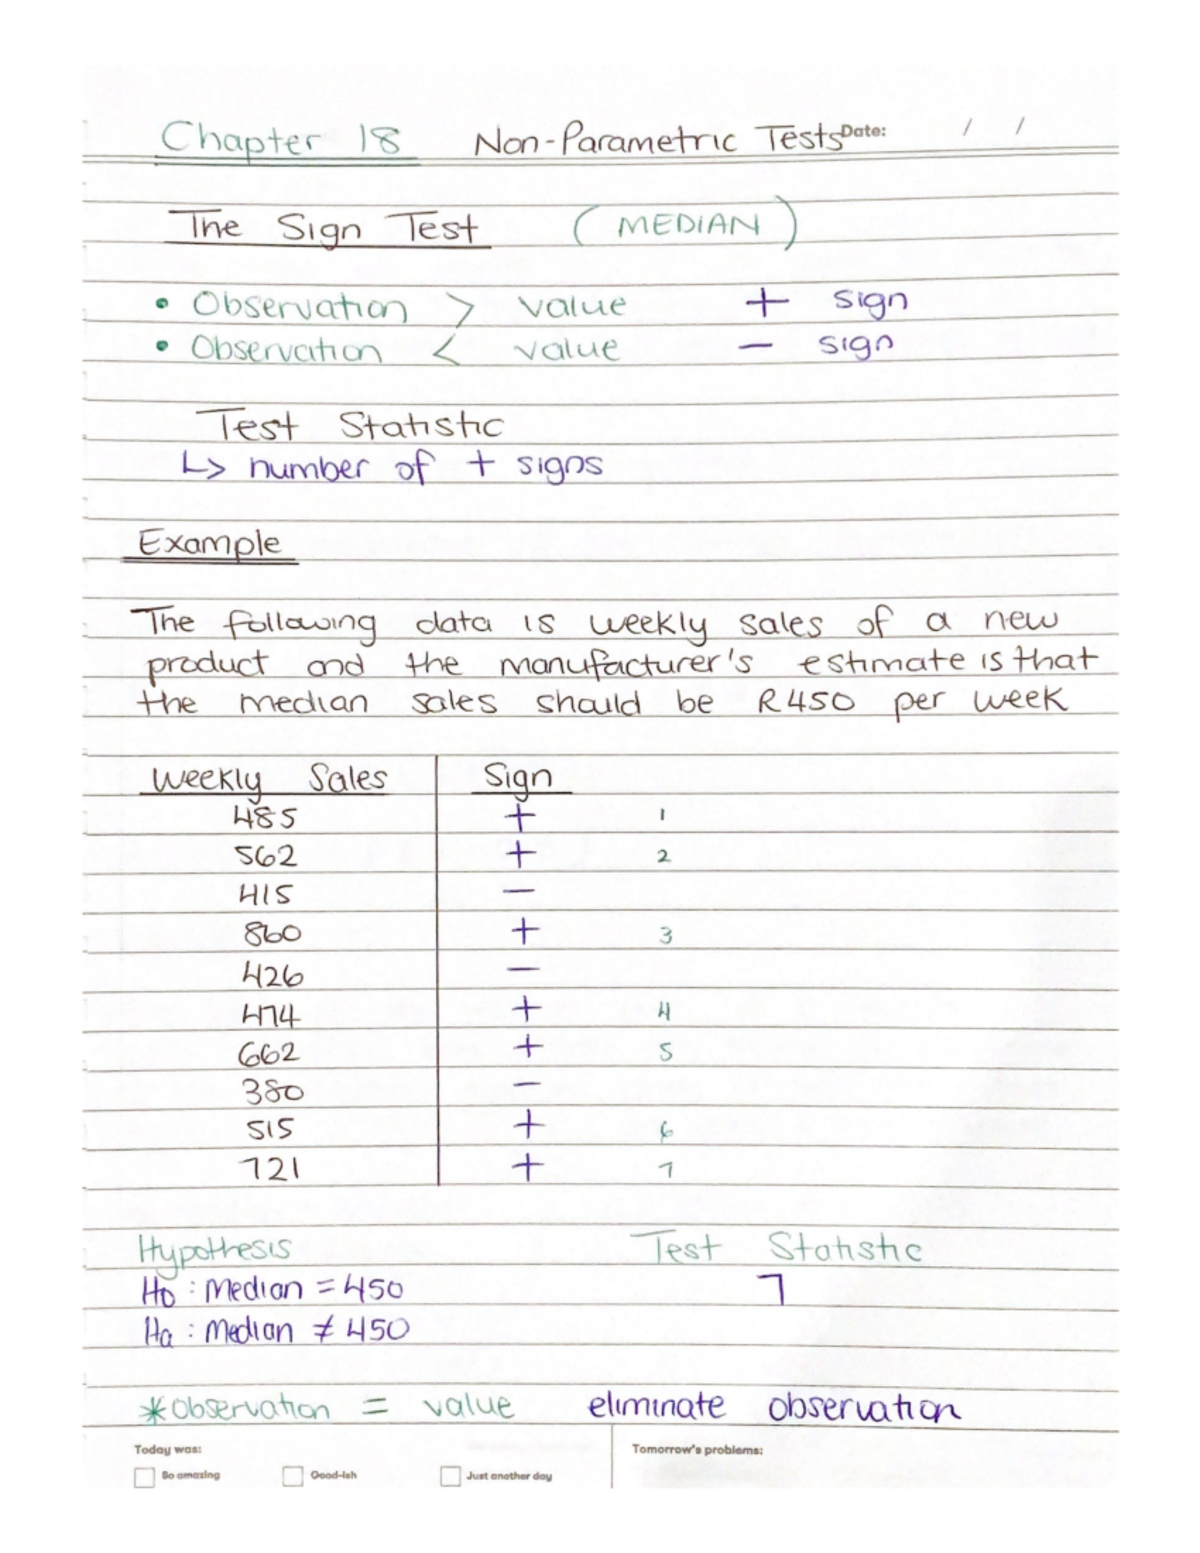 Chapter 18 Non-Parametric Tests Date: / /
The Sign Test (MEDIAN)
• Observation > value + sign
• Observation < value − sign
Test Statistic
↳ number of + signs
Example
The following data is weekly sales of a new
product and the manufacturer's estimate is that
the median sales should be R450 per week
Weekly Sales Sign
485 + 1
562 + 2
415 −
860 + 3
426 −
474 + 4
662 + 5
380 −
515 + 6
721 + 7
Hypothesis Test Statistic
H0 : Median = 450 7
Ha : Median ≠ 450
*Observation = value eliminate observation
Today was: Tomorrow's problems:
So amazing Good-ish Just another day